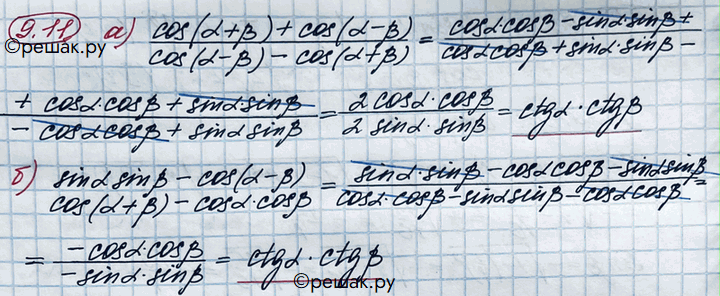 9.11 а) (cos(α+β) + cos(α-β))/(cos(α-β) - cos(α+β)) = (cosα·cosβ - sinα·sinβ +)/(cosα cosβ + sinα·sinβ -
©решак.ру
(+ cosα·cosβ + sinα sinβ)/(- cosα cosβ + sinα sinβ) = (2 cosα·cosβ)/(2 sinα·sinβ) = ctgα·ctgβ
б) (sinα sinβ - cos(α-β))/(cos(α+β) - cosα·cosβ) = (sinα·sinβ - cosα cosβ - sinα sinβ)/(cosα·cosβ - sinα sinβ - cosα cosβ) =
= (-cosα·cosβ)/(-sinα·sinβ) = ctgα·ctgβ
©решак.ру